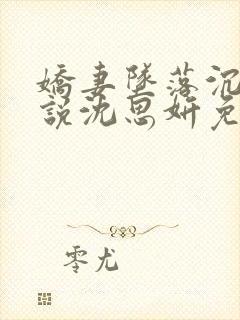 嬌妻墜落沉
說沈思妍免
零尤